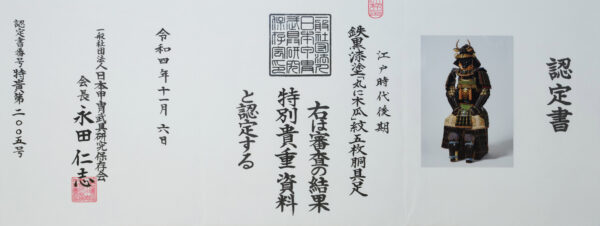 認定書
江戸時代後期
鉄黒漆塗「丸に木瓜」紋五枚胴具足
右は審査の結果
特別貴重資料
と認定する
令和四年十一月六日
一般社団法人日本甲冑武具研究保存会
会長 永田仁志
認定書番号 特貴第二〇〇五号